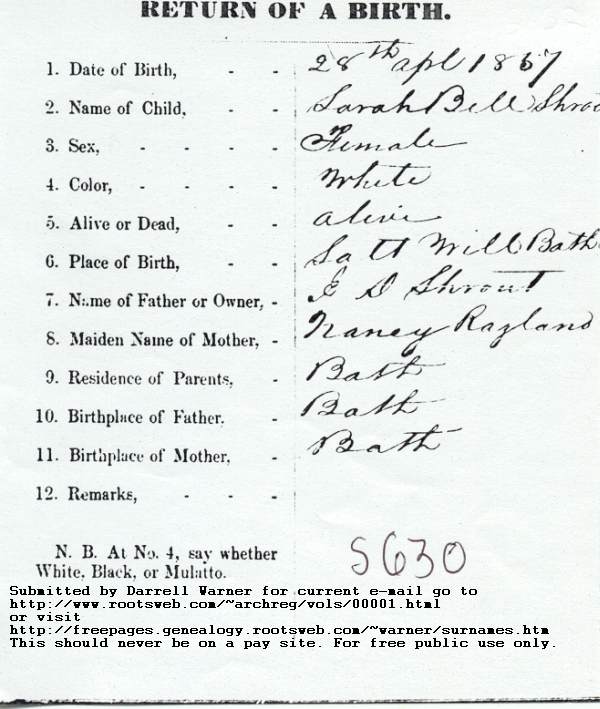 RETURN OF A BIRTH.
1. Date of Birth, - - 28th apl 1857
2. Name of Child, - - Sarah Bell Shrou
3. Sex, - - - - Female
4. Color, - - - - White
5. Alive or Dead, - - alive
6. Place of Birth, - - Will Bath
7. Name of Father or Owner, - E D Shrout
8. Maiden Name of Mother, - Nancy Ragland
9. Residence of Parents, - Bath
10. Birthplace of Father. - Bath
11. Birthplace of Mother, - Bath
12. Remarks, - - -
N. B. At No. 4, say whether
White, Black, or Mulatto.
S630
Submitted by Darrell Warner for current e-mail go to
http://www.rootsweb.com/~archreg/vols/00001.html
or visit
http://freepages.genealogy.rootsweb.com/~warner/surnames.htm
This should never be on a pay site. For free public use only.